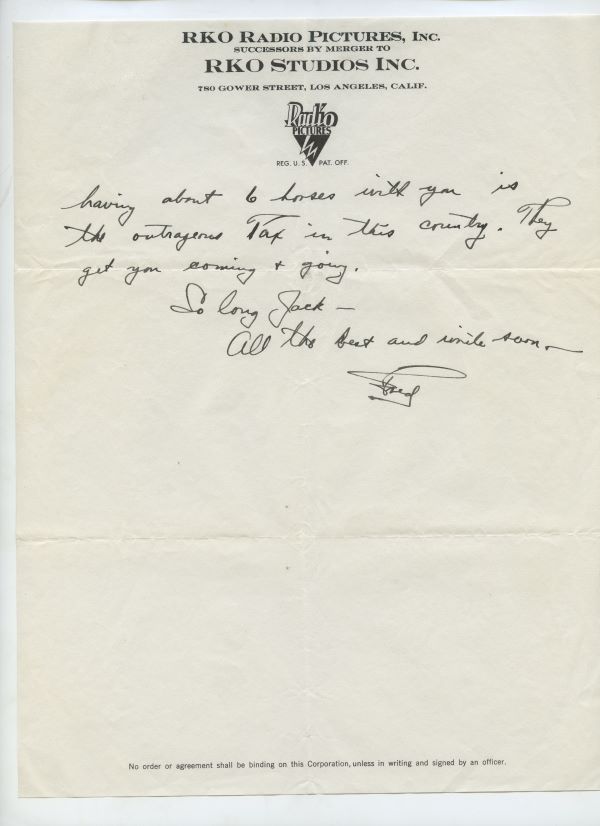 RKO RADIO PICTURES, INC.
SUCCESSORS BY MERGER TO
RKO STUDIOS INC.
780 GOWER STREET, LOS ANGELES, CALIF.
Radio
PICTURES
REG. U. S. PAT. OFF.
having about 6 horses with you is
the outrageous Tax in this country. They
get you coming + going.
So long Jack —
All the best and write soon —
Fred
No order or agreement shall be binding on this Corporation, unless in writing and signed by an officer.